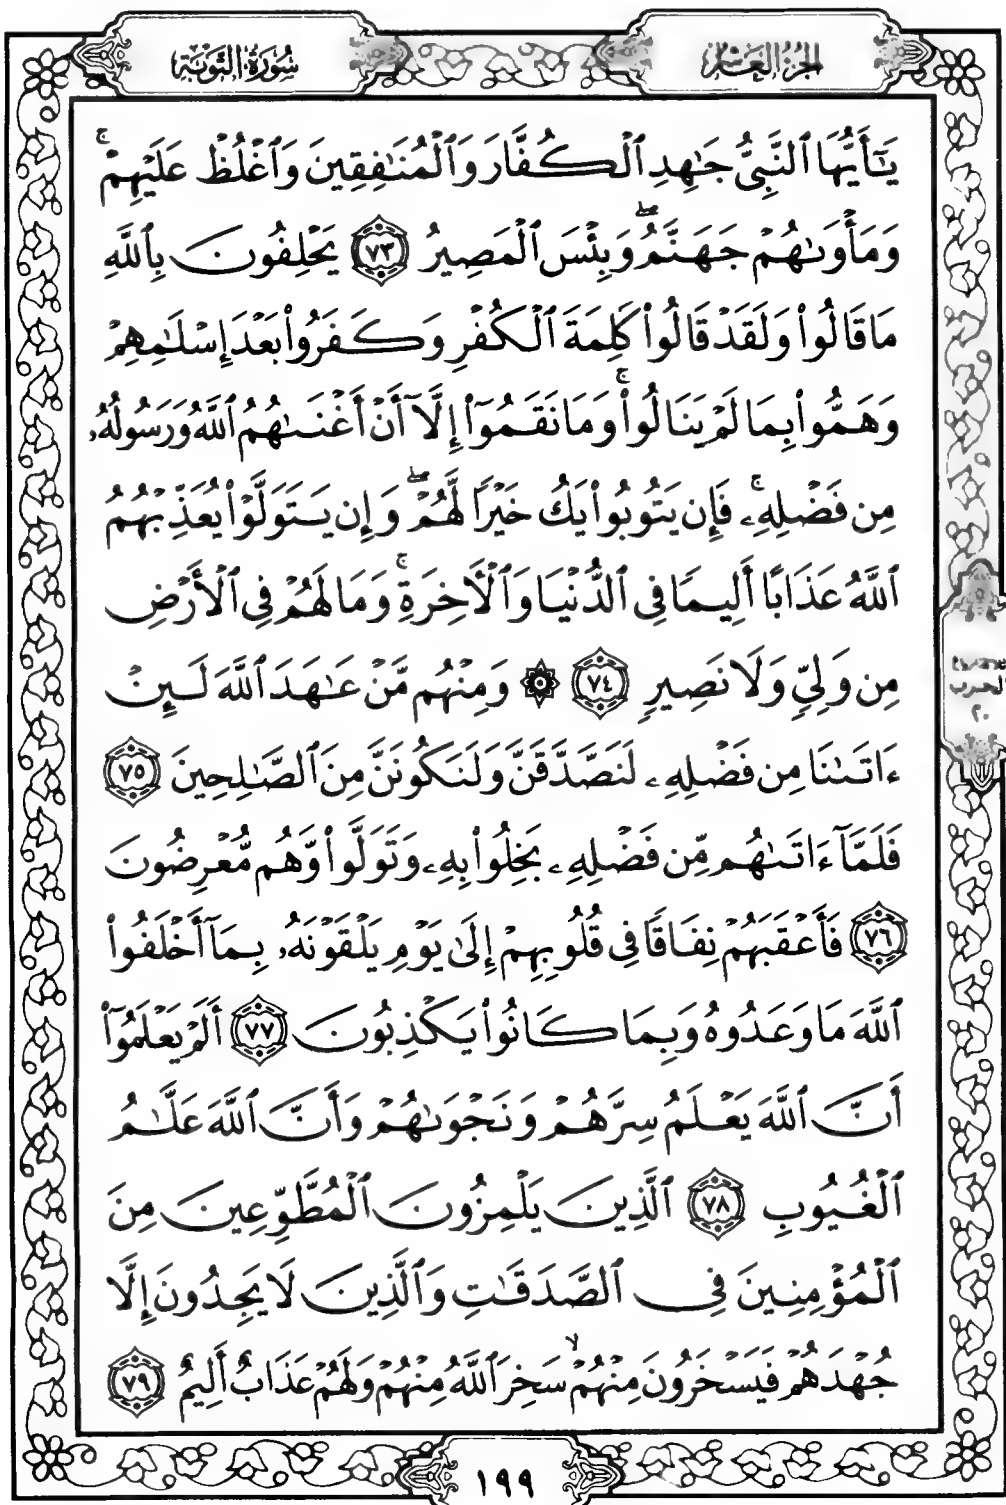 سُورَةُ التَّوْبَةِ
الجُزْءُ العَاشِرُ
يَـٰٓأَيُّهَا ٱلنَّبِىُّ جَـٰهِدِ ٱلْكُفَّارَ وَٱلْمُنَـٰفِقِينَ وَٱغْلُظْ عَلَيْهِمْ ۚ
وَمَأْوَىٰهُمْ جَهَنَّمُ ۖ وَبِئْسَ ٱلْمَصِيرُ ٧٣ يَحْلِفُونَ بِٱللَّهِ
مَا قَالُوا۟ وَلَقَدْ قَالُوا۟ كَلِمَةَ ٱلْكُفْرِ وَكَفَرُوا۟ بَعْدَ إِسْلَـٰمِهِمْ
وَهَمُّوا۟ بِمَا لَمْ يَنَالُوا۟ ۚ وَمَا نَقَمُوٓا۟ إِلَّآ أَنْ أَغْنَىٰهُمُ ٱللَّهُ وَرَسُولُهُۥ
مِن فَضْلِهِۦ ۚ فَإِن يَتُوبُوا۟ يَكُ خَيْرًا لَّهُمْ ۖ وَإِن يَتَوَلَّوْا۟ يُعَذِّبْهُمُ
ٱللَّهُ عَذَابًا أَلِيمًا فِى ٱلدُّنْيَا وَٱلْـَٔاخِرَةِ ۚ وَمَا لَهُمْ فِى ٱلْأَرْضِ
مِن وَلِىٍّ وَلَا نَصِيرٍ ٧٤ ۞ وَمِنْهُم مَّنْ عَـٰهَدَ ٱللَّهَ لَئِنْ
ءَاتَىٰنَا مِن فَضْلِهِۦ لَنَصَّدَّقَنَّ وَلَنَكُونَنَّ مِنَ ٱلصَّـٰلِحِينَ ٧٥
فَلَمَّآ ءَاتَىٰهُم مِّن فَضْلِهِۦ بَخِلُوا۟ بِهِۦ وَتَوَلَّوا۟ وَّهُم مُّعْرِضُونَ
٧٦ فَأَعْقَبَهُمْ نِفَاقًا فِى قُلُوبِهِمْ إِلَىٰ يَوْمِ يَلْقَوْنَهُۥ بِمَآ أَخْلَفُوا۟
ٱللَّهَ مَا وَعَدُوهُ وَبِمَا كَانُوا۟ يَكْذِبُونَ ٧٧ أَلَمْ يَعْلَمُوٓا۟
أَنَّ ٱللَّهَ يَعْلَمُ سِرَّهُمْ وَنَجْوَىٰهُمْ وَأَنَّ ٱللَّهَ عَلَّـٰمُ
ٱلْغُيُوبِ ٧٨ ٱلَّذِينَ يَلْمِزُونَ ٱلْمُطَّوِّعِينَ مِنَ
ٱلْمُؤْمِنِينَ فِى ٱلصَّدَقَـٰتِ وَٱلَّذِينَ لَا يَجِدُونَ إِلَّا
جُهْدَهُمْ فَيَسْخَرُونَ مِنْهُمْ ۙ سَخِرَ ٱللَّهُ مِنْهُمْ وَلَهُمْ عَذَابٌ أَلِيمٌ ٧٩
الحزب
٢٠
١٩٩